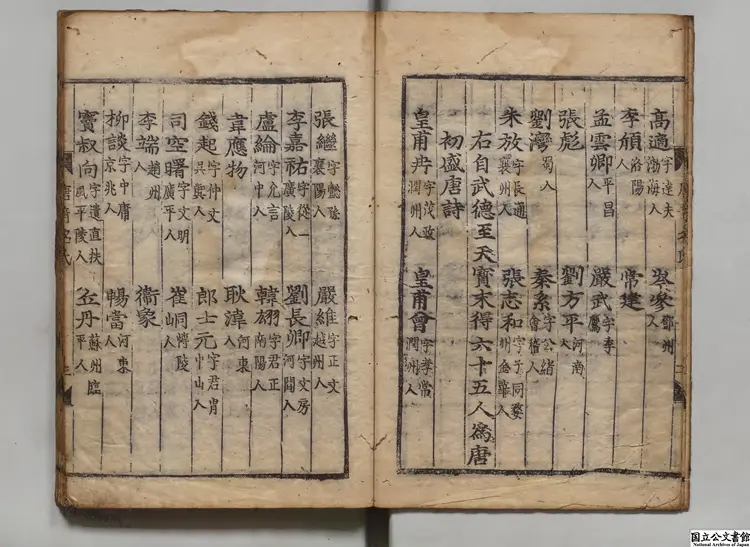 高適 字達夫渤海人 岑參 鄧州人
李頎 洛陽人 常建
孟雲卿 平昌人 嚴武 字季鷹
張彪 劉方平 河南人
劉灣 蜀人 秦系 字公緒會稽人
朱放 字長通襄州人 張志和 字子同婺州金華人
右自武德至天寶末得六十五人爲唐
初盛唐詩
皇甫冉 字茂政潤州人 皇甫曾 字孝常潤州人
張繼 字懿孫襄陽人 嚴維 字正文越州人
李嘉祐 字從一廣陵人 劉長卿 字文房河間人
盧綸 字允言河中人 韓翃 字君正南陽人
韋應物 耿湋 河東
錢起 字仲文吳興人 郎士元 字君胄中山人
司空曙 字文明廣平人 崔峒 博陵
李端 趙州人 衞象
柳談 字中庸京兆人 暢當 河東人
竇叔向 字遺直扶風平陵人 丘丹 蘇州臨平人
唐詩名氏
国立公文書館
National Archives of Japan